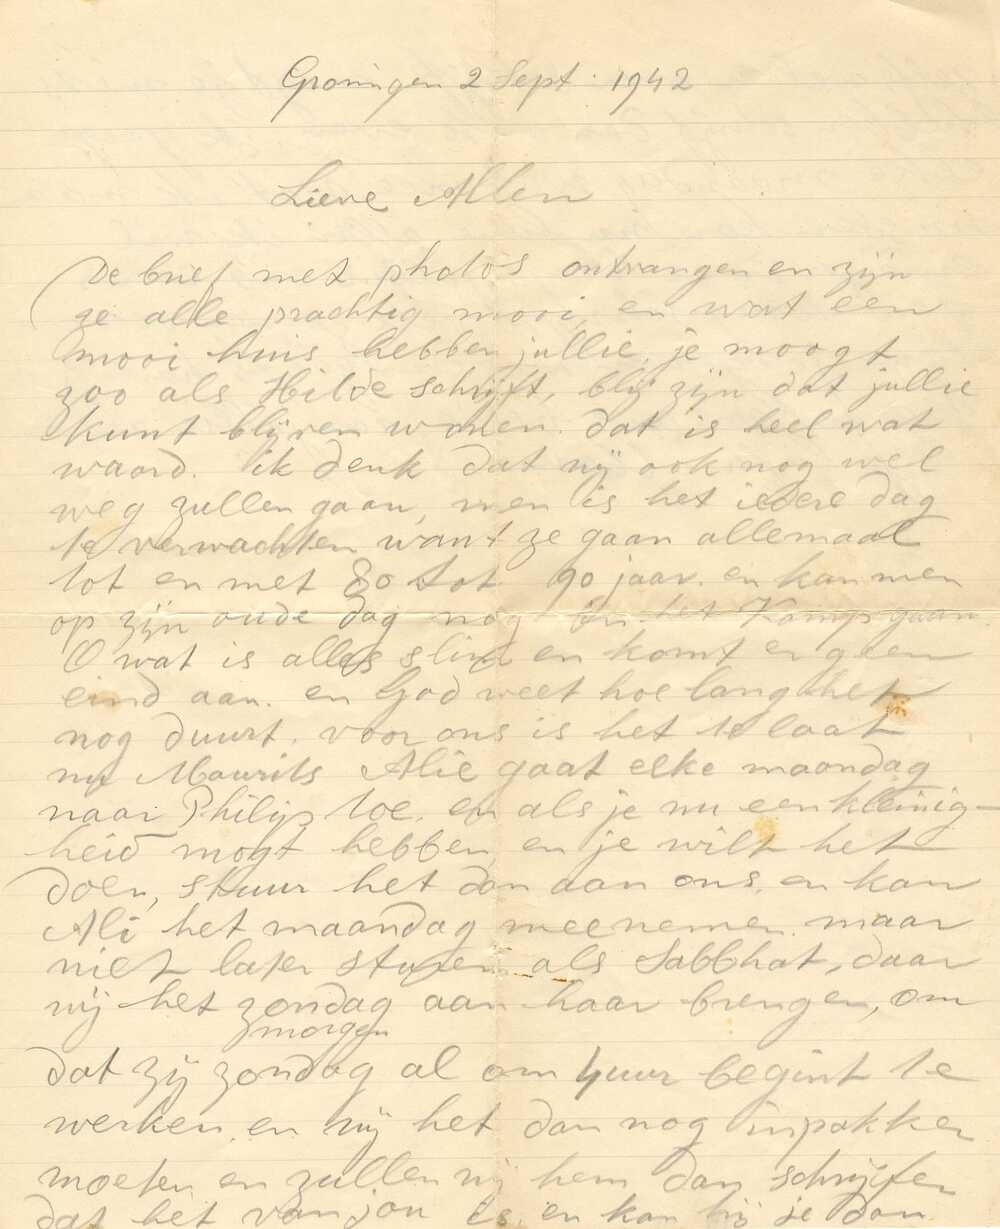 Groningen 2 Sept. 1942
Lieve Allen
De brief met photo's ontvangen en zijn
ze alle prachtig mooi, en wat een
mooi huis hebben jullie, je moogt
zoo als Hilde schrijft, blij zijn dat jullie
kunt blijven wonen. dat is heel wat
waard. ik denk dat wij ook nog wel
weg zullen gaan, men is het iedere dag
te verwachten want ze gaan allemaal
tot en met 80 tot 90 jaar. en kan men
op zijn oude dag nog in het Kamp gaan.
O wat is alles slim en komt er geen
eind aan. en God weet hoe lang het
nog duurt. voor ons is het te laat
nu Maurits Alie gaat elke maandag
naar Philip toe. en als je nu een kleinig-
heid mogt hebben en je wilt het
doen, stuur het dan aan ons. en kan
Ali het maandag meenemen. maar
niet later sturen als Sabbhat, daar
wij het zondag aan haar brengen, om
morgen
dat zij zondag al om 4 uur begint te
werken. en wij het dan nog inpakken
moeten en zullen wij hem dan schrijfen
dat het van jou is, en kan hij je dan